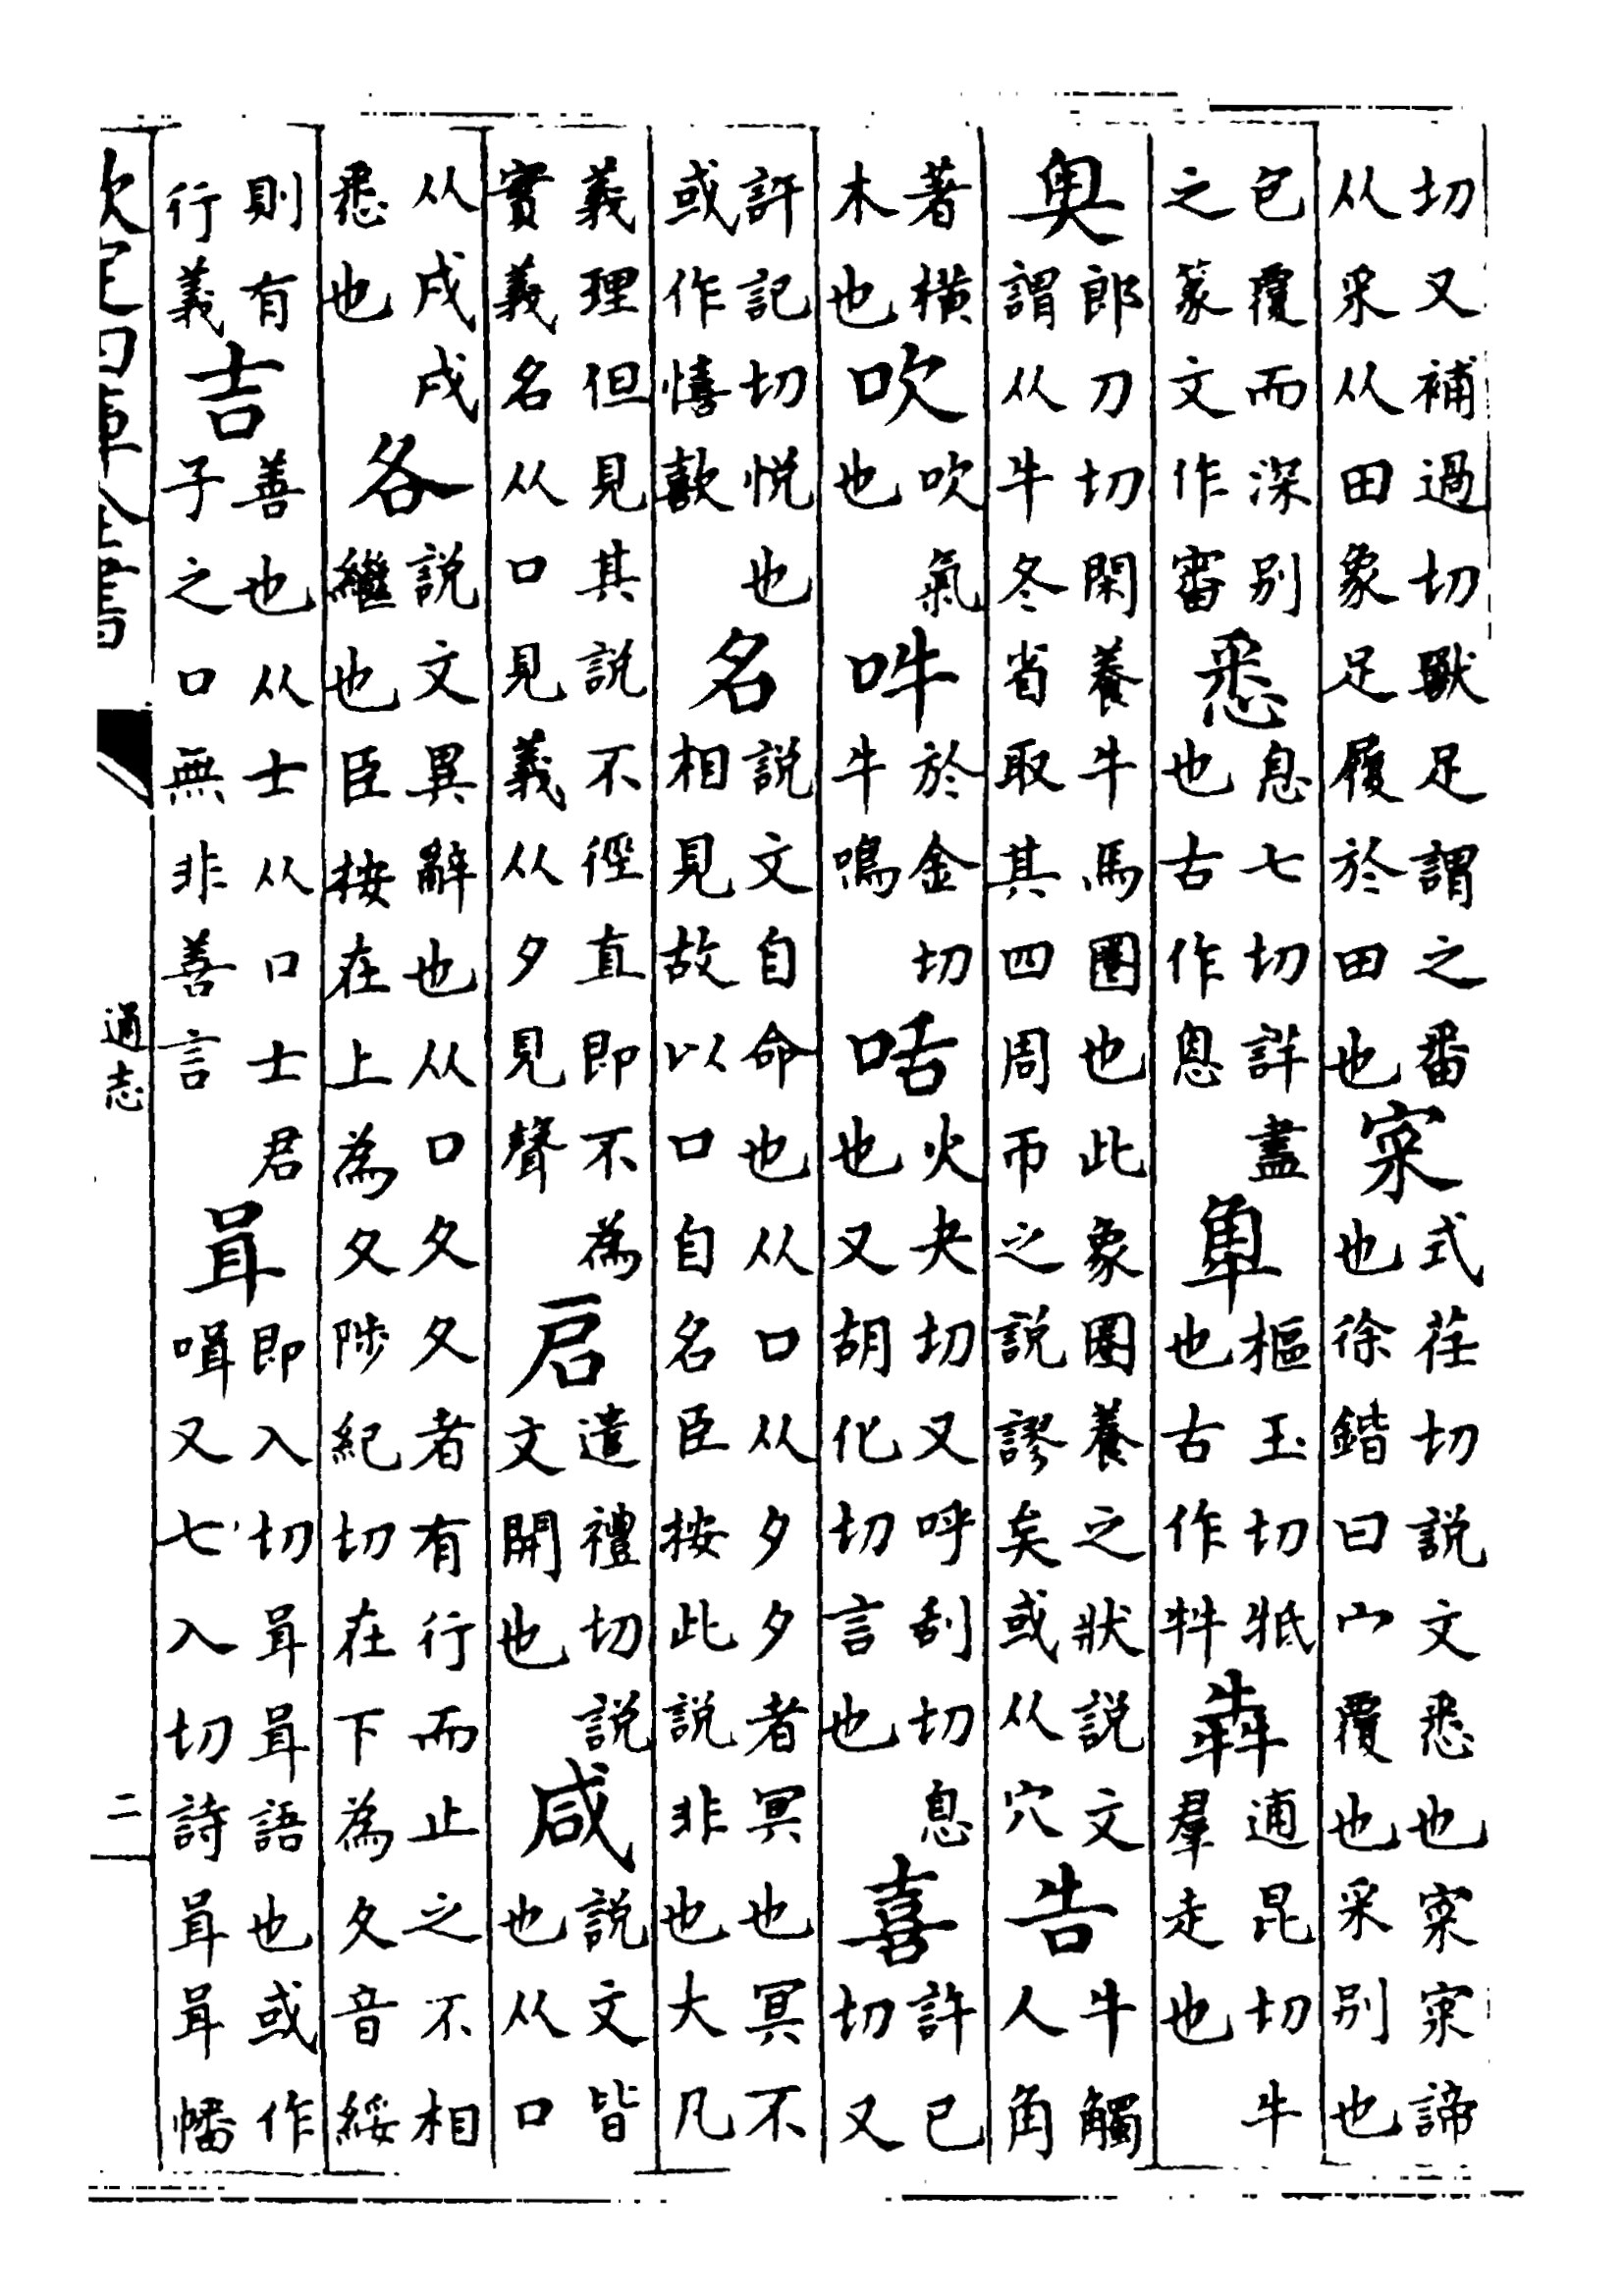 切又補過切獸足謂之番从釆从田象足履於田也宷式荏切說文悉也宷宷諦也徐鍇曰宀覆也釆別也
包覆而深別之篆文作審悉息七切詳盡也古作恖樞玉切牴也古作犇逋昆切牛羣走也
郎刀切閑養牛馬圈也此象圈養之狀說文謂从牛冬省取其四周帀之說謬矣或从穴告牛觸人角
著橫木也吹吹氣也吽於金切牛鳴咶火夬切又呼刮切息也又胡化切言也喜許已切又
許記切悅也或作憘歖名說文自命也从口从夕夕者冥也冥不相見故以口自名臣按此說非也大凡
義理但見其說不徑直即不為實義名从口見義从夕見聲启遣禮切說文開也咸說文皆也从口
从戌戌悉也各說文異辭也从口夊夊者有行而止之不相繼也臣按在上為夂陟紀切在下為夊音綏
則有行義吉善也从士从口士君子之口無非善言咠即入切咠咠語也或作㗱又七入切詩咠咠幡
欽定四庫全書
通志
二